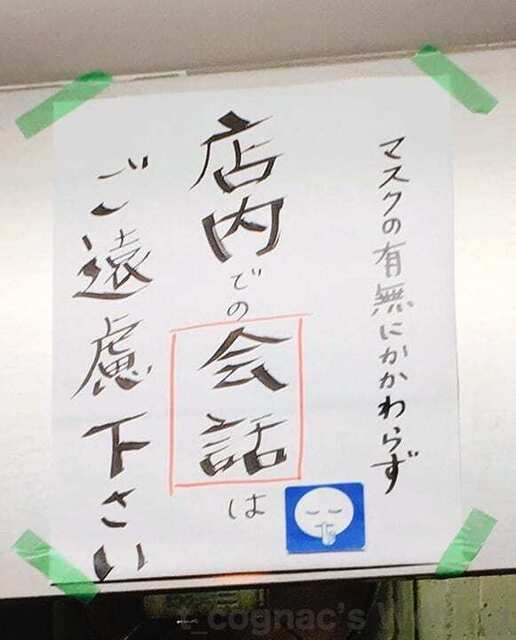 マスクの有無にかかわらず
店内での会話は
ご遠慮下さい
t_cognac's